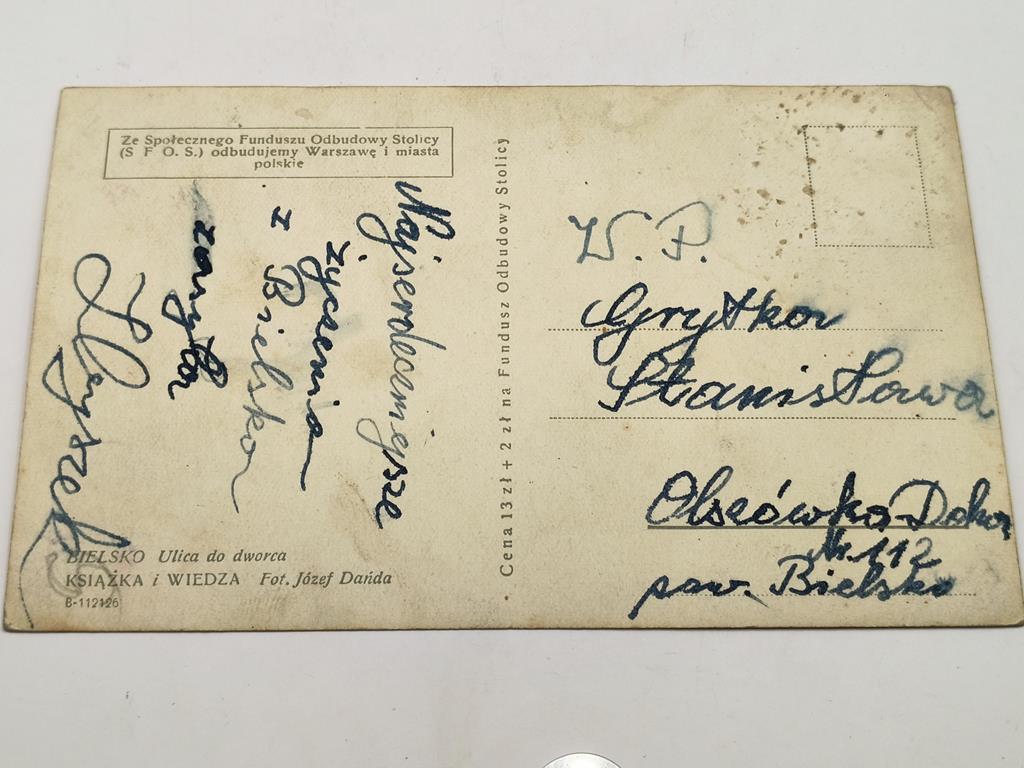 Ze Społecznego Funduszu Odbudowy Stolicy
(S F O. S.) odbudujemy Warszawę i miasta
polskie
Najserdeczniejsze
życenia
z Bielska
Zbyszek
BIELSKO Ulica do dworca
KSIĄŻKA i WIEDZA Fot. Józef Dańda
B-112126
Cena 13 zł + 2 zł na Fundusz Odbudowy Stolicy
W. P.
Grytkor
Stanisława
Nr. 112
pow. Bielsko